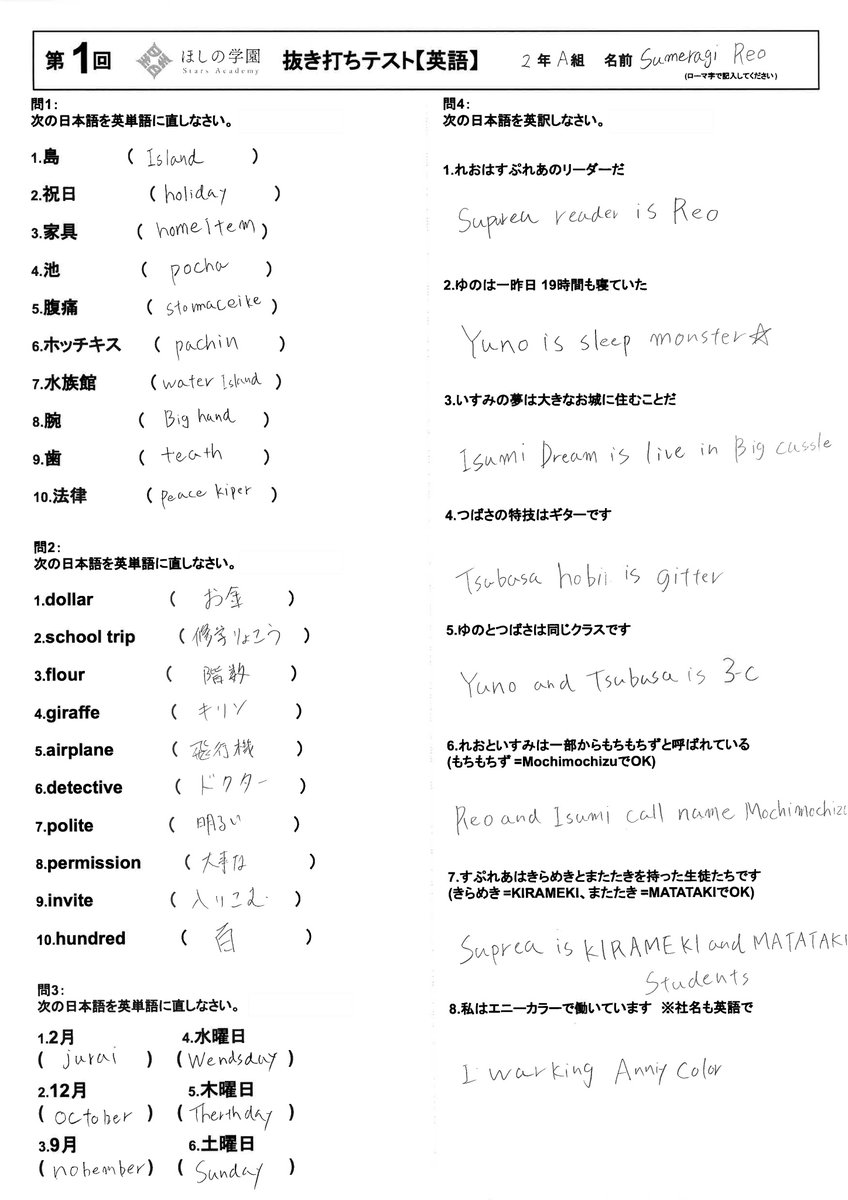 第1回 ほしの学園 Stars Academy 抜き打ちテスト【英語】 2年A組 名前 Sumeragi Reo
(ローマ字で記入してください)
問1:
次の日本語を英単語に直しなさい。
1.島 ( Island )
2.祝日 ( holiday )
3.家具 ( homeitem )
4.池 ( pocha )
5.腹痛 ( stomaceike )
6.ホッチキス ( pachin )
7.水族館 ( water Island )
8.腕 ( Big hand )
9.歯 ( teath )
10.法律 ( peace kiper )
問2:
次の日本語を英単語に直しなさい。
1.dollar ( お金 )
2.school trip ( 修学りょこう )
3.flour ( 階数 )
4.giraffe ( キリン )
5.airplane ( 飛行機 )
6.detective ( ドクター )
7.polite ( 明るい )
8.permission ( 大事な )
9.invite ( 入りこむ )
10.hundred ( 百 )
問3:
次の日本語を英単語に直しなさい。
1.2月 ( jurai )
2.12月 ( october )
3.9月 ( nobember )
4.水曜日 ( Wendsday )
5.木曜日 ( Therthday )
6.土曜日 ( Sunday )
問4:
次の日本語を英訳しなさい。
1.れおはすぷれあのリーダーだ
Suprea reader is Reo
2.ゆのは一昨日 19時間も寝ていた
Yuno is sleep monster☆
3.いすみの夢は大きなお城に住むことだ
Isumi Dream is live in Big cassle
4.つばさの特技はギターです
Tsubasa hobii is gitter
5.ゆのとつばさは同じクラスです
Yuno and Tsubasa is 3-C
6.れおといすみは一部からもちもちずと呼ばれている
(もちもちず =MochimochizuでOK)
Reo and Isumi call name Mochimochizu
7.すぷれあはきらめきとまたたきを持った生徒たちです
(きらめき =KIRAMEKI、またたき =MATATAKIでOK)
Suprea is KIRAMEKI and MATATAKI
Students
8.私はエニーカラーで働いています ※社名も英語で
I warking Anniy Color